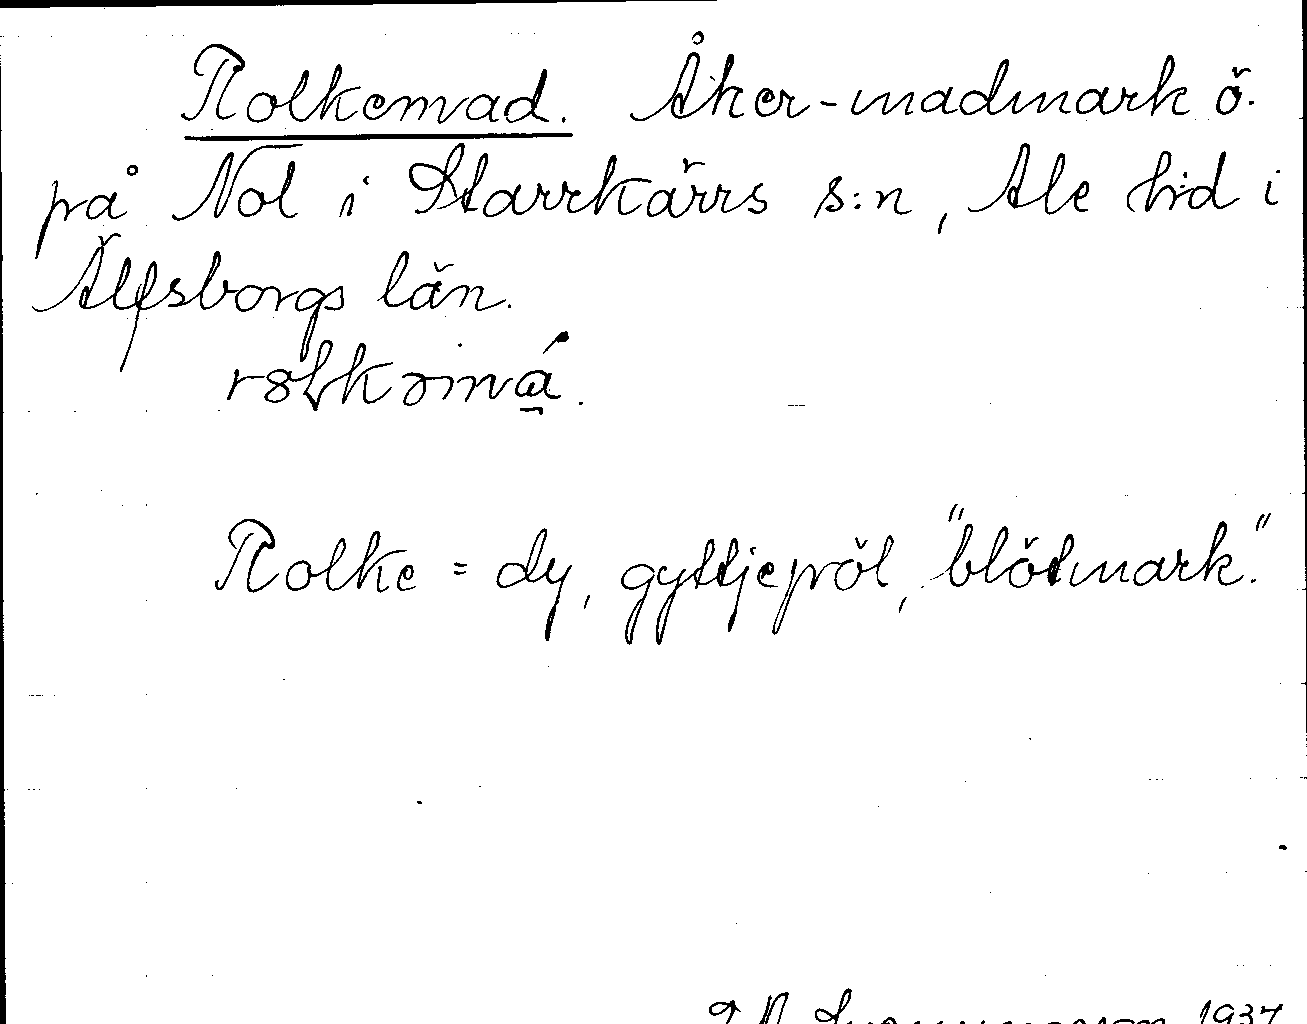 Rolkemad. Åker-madmark ö.
på Nol i Starrkärrs s:n, Ale h:d i
Älfsborgs län.
Rolke = dy, gyttjepöl, "blötmark."
1937